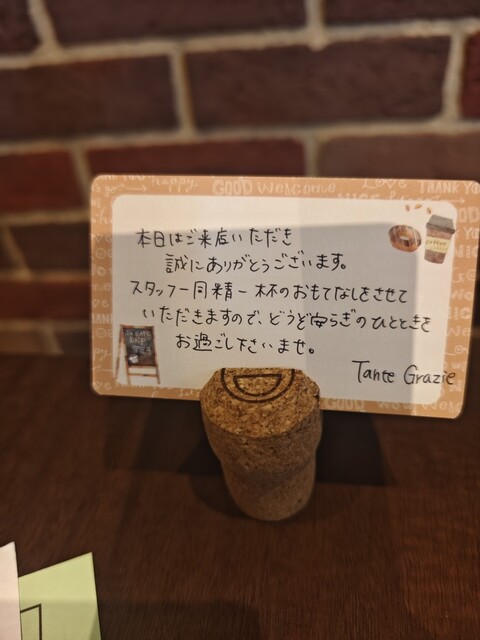 GOOD Welcome
THANK YOU
本日はご来店いただき
誠にありがとうございます。
スタッフ一同精一杯のおもてなしをさせて
いただきますので、どうぞ安らぎのひとときを
お過ごし下さいませ。
Tante Grazie
coffee
GOOD